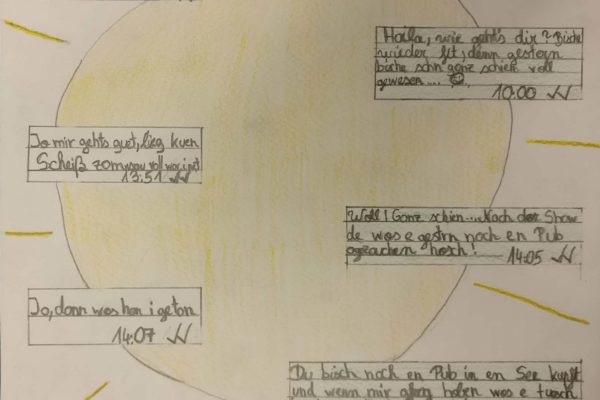 Haila, wie geht's dir? Bische
wieder fit, denn gestern
bische schn gonz schiek voll
gewesen....
10:00
Jo mir gehts guet, lieg kuen
Scheiß zomm sou voll wor i net
13:51
Woll! Gonz schien... Noch der Show
de wos e gestrn noch en Pub
ogzochen hosch!
14:05
Jo, donn wos hon i geton
14:07
Du bisch noch en Pub in en See kupft
und wenn mir gfrog hoben wos e tuasch